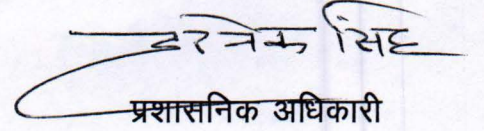 हरनेक सिंह
प्रशासनिक अधिकारी